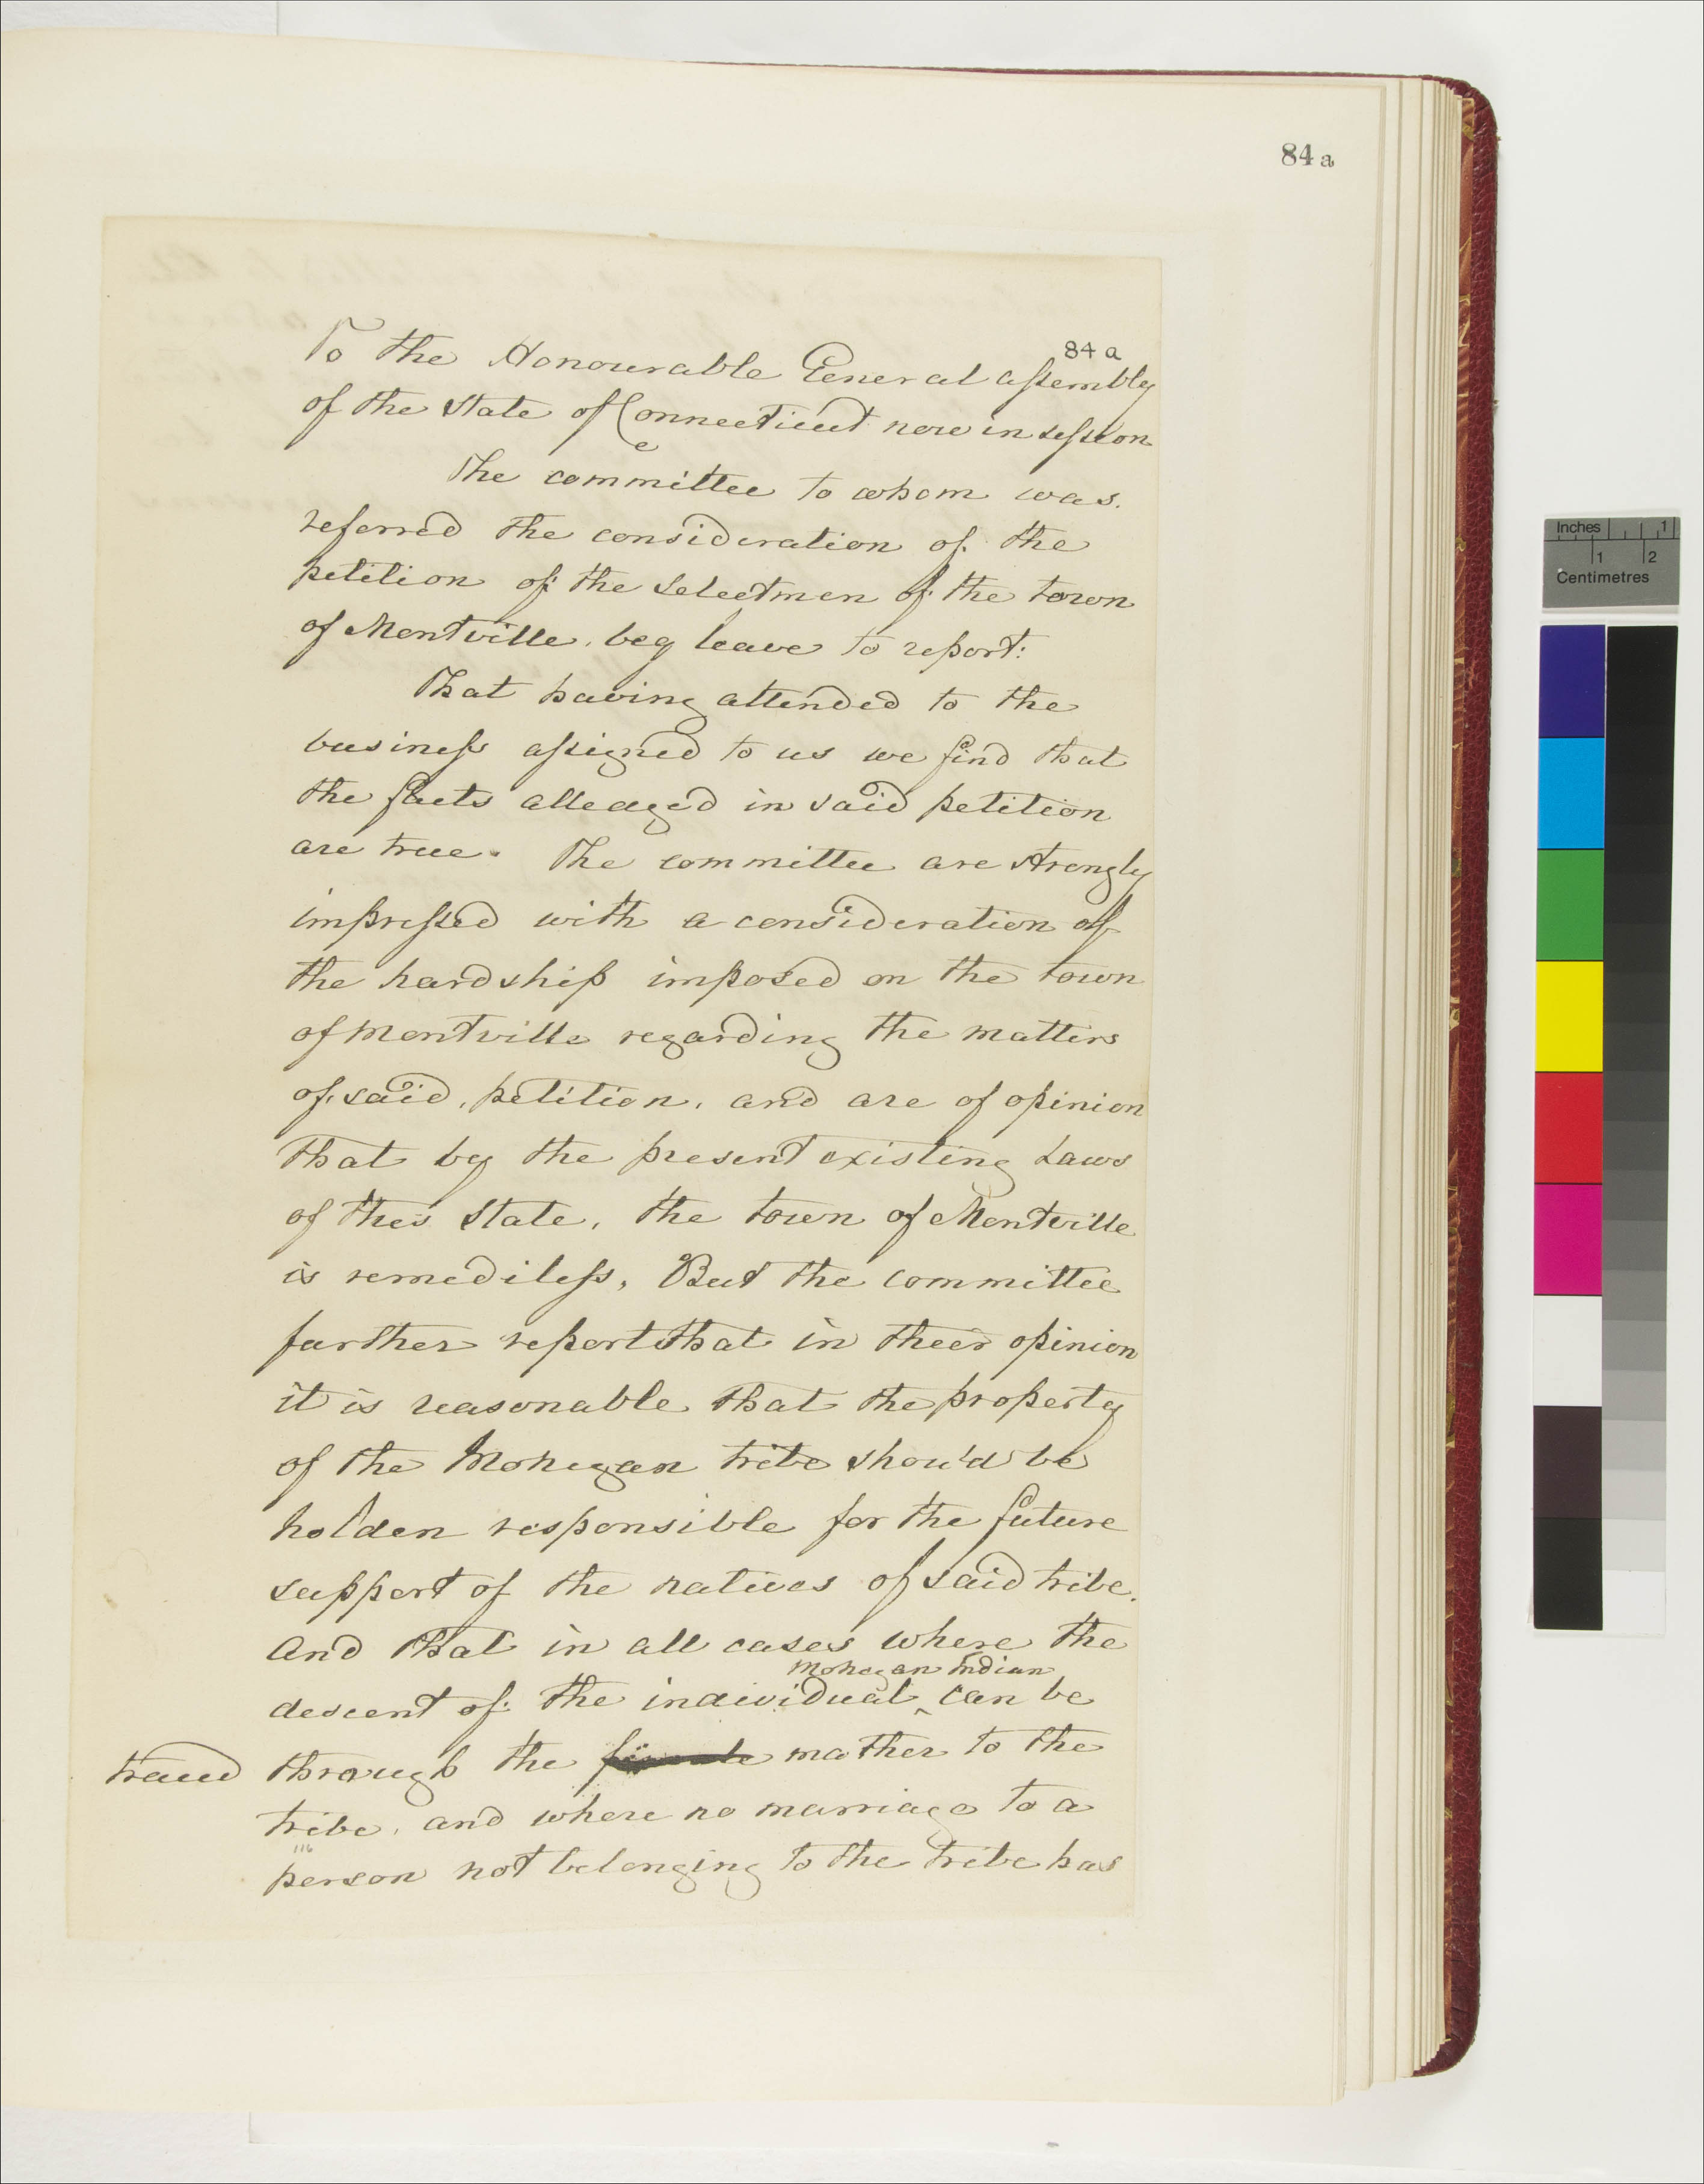 84 a
84 a
To the Honourable General assembly
of the State of Connecticut now in session
The committee to whom was
referred the consideration of the
petition of the selectmen of the town
of Montville, beg leave to report:
That having attended to the
business assigned to us we find that
the facts alleaged in said petition
are true. The committee are strongly
impressed with a consideration of
the hardship imposed on the town
of Montville regarding the matters
of said, petition, and are of opinion
that by the present existing Laws
of this State, the town of Montville
is remediless, But the committee
further report that in their opinion
it is reasonable that the property
of the Mohegan tribe shou'd be
holden responsible for the future
support of the natives of said tribe.
And that in all cases where the
Mohegan Indian
descent of the individual ^ can be
traced through the female mother to the
tribe, and where no marriage to a
116
person not belonging to the tribe has
Inches 1
1 2
Centimetres